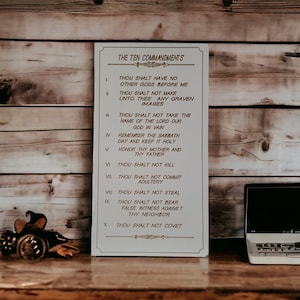 THE TEN COMMANDMENTS
I. THOU SHALT HAVE NO
OTHER GODS BEFORE ME
II. THOU SHALT NOT MAKE
UNTO THEE ANY GRAVEN
IMAGES
III. THOU SHALT NOT TAKE THE
NAME OF THE LORD OUR
GOD IN VAIN
IV. REMEMBER THE SABBATH
DAY AND KEEP IT HOLY
V. HONOR THY MOTHER AND
THY FATHER
VI. THOU SHALT NOT KILL
VII. THOU SHALT NOT COMMIT
ADULTERY
VIII. THOU SHALT NOT STEAL
IX. THOU SHALT NOT BEAR
FALSE WITNESS AGAINST
THY NEIGHBOR
X. THOU SHALT NOT COVET